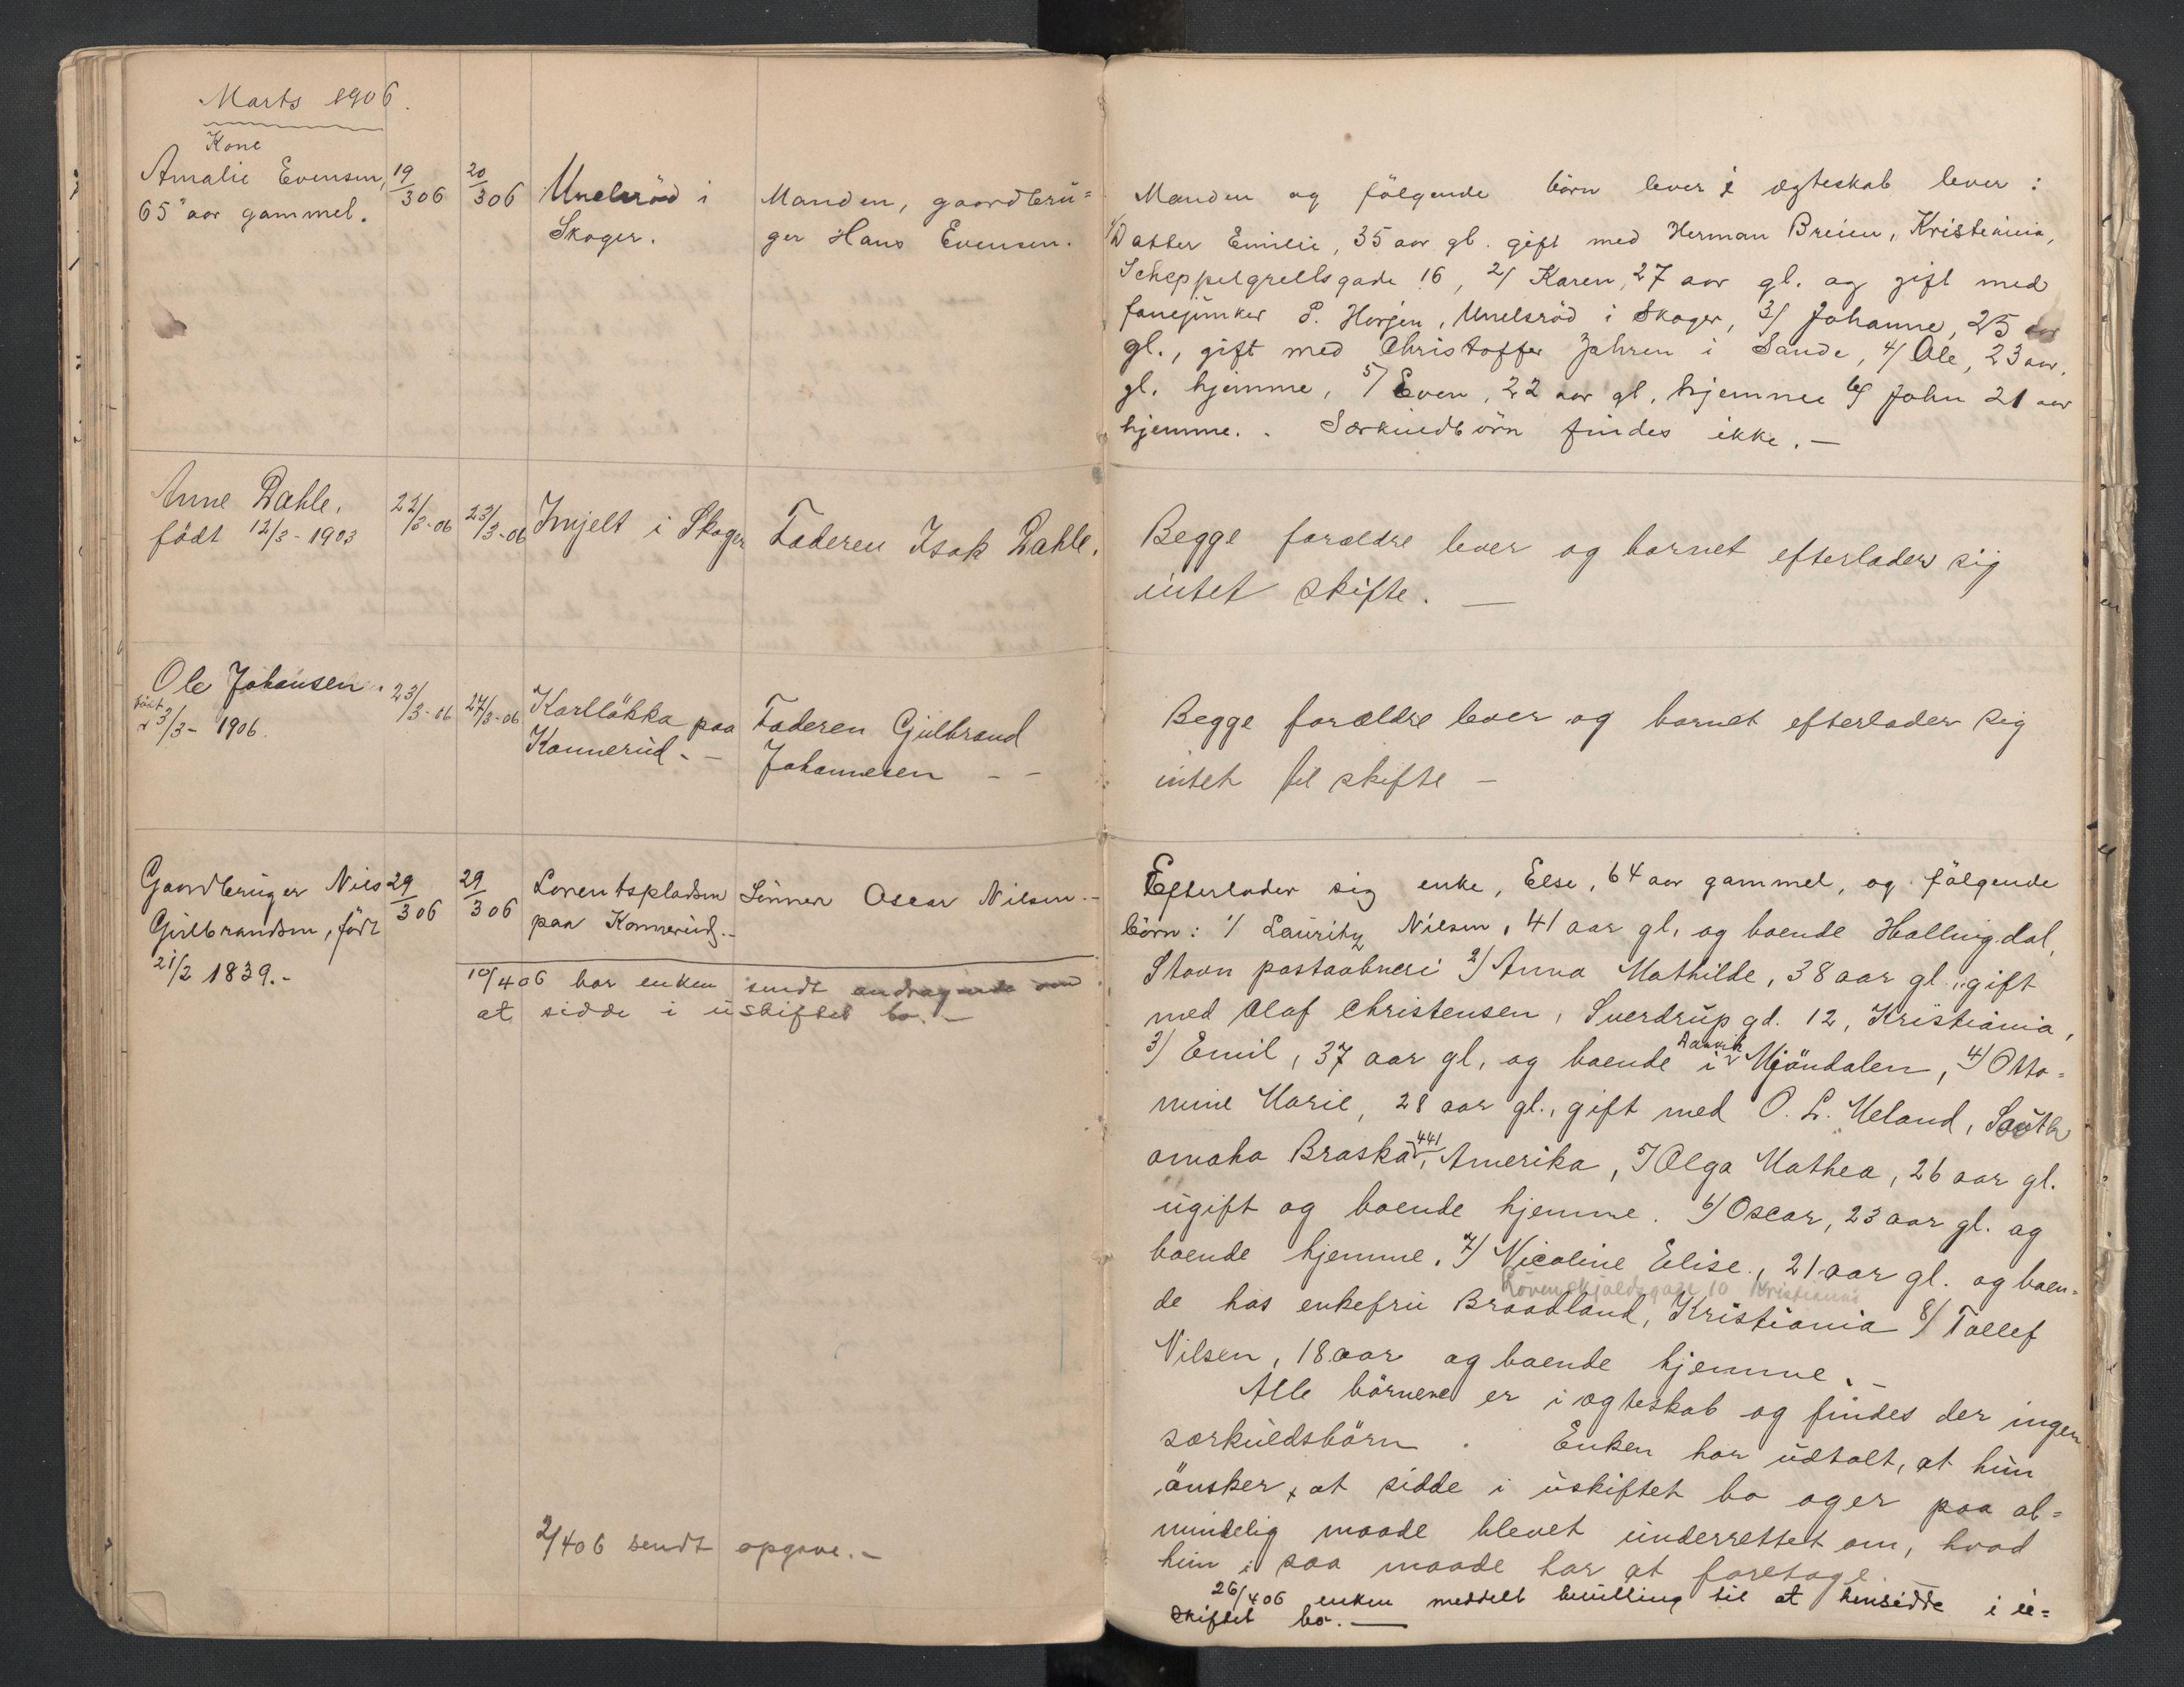 Marts 1906.
Kone
Amalie Evensen,
65 aar gammel.
19/3 06
20/3 06
Unelsröd i
Skoger.
Manden, gaardbru=
ger Hans Evensen.
Manden og följende börn lever i ægteskab lever:
1/ Datter Emilie, 35 aar gl. gift med Herman Breien, Kristiania,
Scheppelgrellsgade 16, 2/ Karen, 27 aar gl. og gift med
fanejunker P. Horjen, Unelsröd i Skoger, 3/ Johanne, 25 aar
gl., gift med Christoffer Jahren i Sande, 4/ Ole, 23 aar.
gl. hjemme, 5/ Even, 22 aar gl. hjemme 6/ John 21 aar
hjemme. . Særkuldbörn findes ikke. —
Anne Dahle.
födt 12/3 - 1903
22/3-06
23/3-06
Imjelt i Skoger
Faderen Isak Dahle.
Begge forældre lever og barnet efterlader sig
intet skifte. —
Ole Johansen.
födt
23/3- 1906.
23/3-06
24/3-06
Karllökka paa
Konnerud. -
Faderen Gulbrand
Johannesen - -
Begge forældre lever og barnet efterlader sig
intet til skifte —
Gaardbruger Nils
Gulbrandsen, födt
21/2 1839.-
29/3 06
29/3 06
Lorentspladsen
paa Konnerud.-
Sönnen Oscar Nilsen.-
10/4 06 har enken sendt andragende om
at sidde i uskiftet bo. -
2/4 06 sendt opgave. -
Efterlader sig enke, Else, 64 aar gammel, og följende
börn: 1/ Lauritz Nilsen, 41 aar gl. og boende Hallingdal,
Stavn postaabneri 2/ Anna Mathilde, 38 aar gl. gift
med Olaf Christensen, Sverdrup gd. 12, Kristiania,
3/ Emil, 37 aar gl, og boende i Mjöndalen, 4/ Otto=
mine Marie, 28 aar gl., gift med O. L. Meland, South
omaha Braska 441, Amerika, 5/ Olga Mathea, 26 aar gl.
ugift og boende hjemme. 6/ Oscar, 23 aar gl. og
boende hjemme, 7/ Nicoline Elise, 21 aar gl. og boen=
Lövenskjoldsgade 10 Kristiania
de hos enkefru Braadland, Kristiania 8/ Tollef
Nilsen, 18 aar og boende hjemme. -
Alle börnene er i ægteskab og findes der ingen
særkuldsbörn . Enken har udtalt, at hun
önsker, at sidde i uskiftet bo og er paa al=
mindelig maade blevet underrettet om, hvad
hun i saa maade har at foretage. —
26/4 06 enken meddelt bevilling til at hensidde i u=
skiftet bo. —